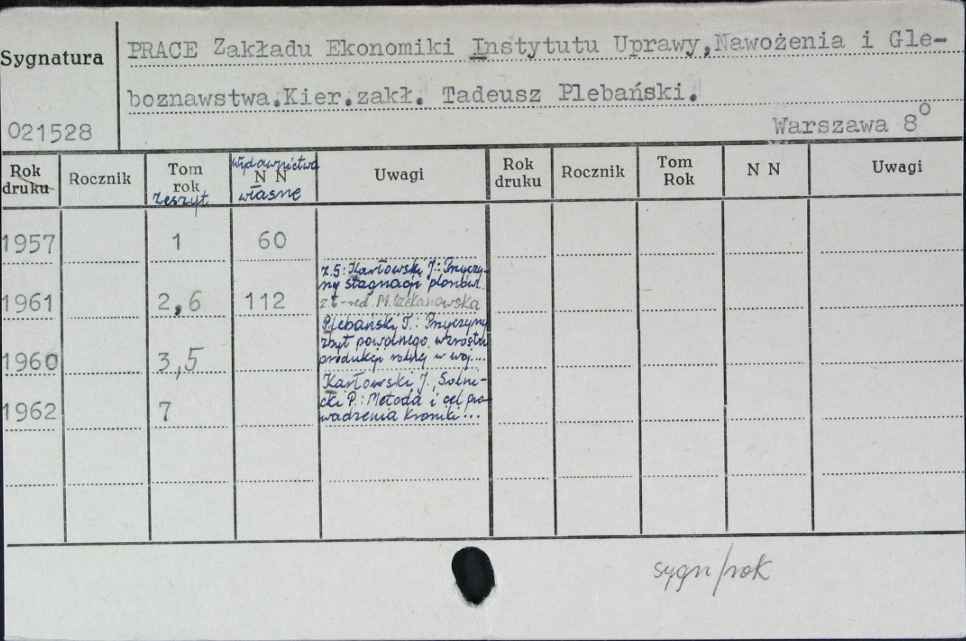 Sygnatura
PRACE Zakładu Ekonomiki Instytutu Uprawy,Nawożenia i Gle-
boznawstwa.Kier.zakł. Tadeusz Plebański.
021528
Warszawa 8°
Rok druku
Rocznik
Tom rok zeszyt
Wydawnictwa N N własne
Uwagi
Rok druku
Rocznik
Tom Rok
N N
Uwagi
1957 1 60
z.5: Karłowski J.: Przyczy-
ny stagnacji plonów
1961 2,6 112 z t-red. M.
Plebański T.: Przyczyny
zbyt powolnego wzrostu
1960 3,5 produkcji rolnej w woj....
Karłowski J.,
1962 7 P.: Metoda i cel pro-
wadzenia kroniki...
sygn/rok